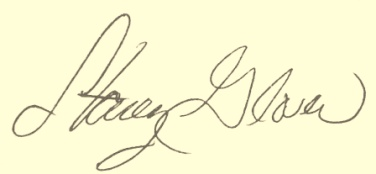 Stacey Glover